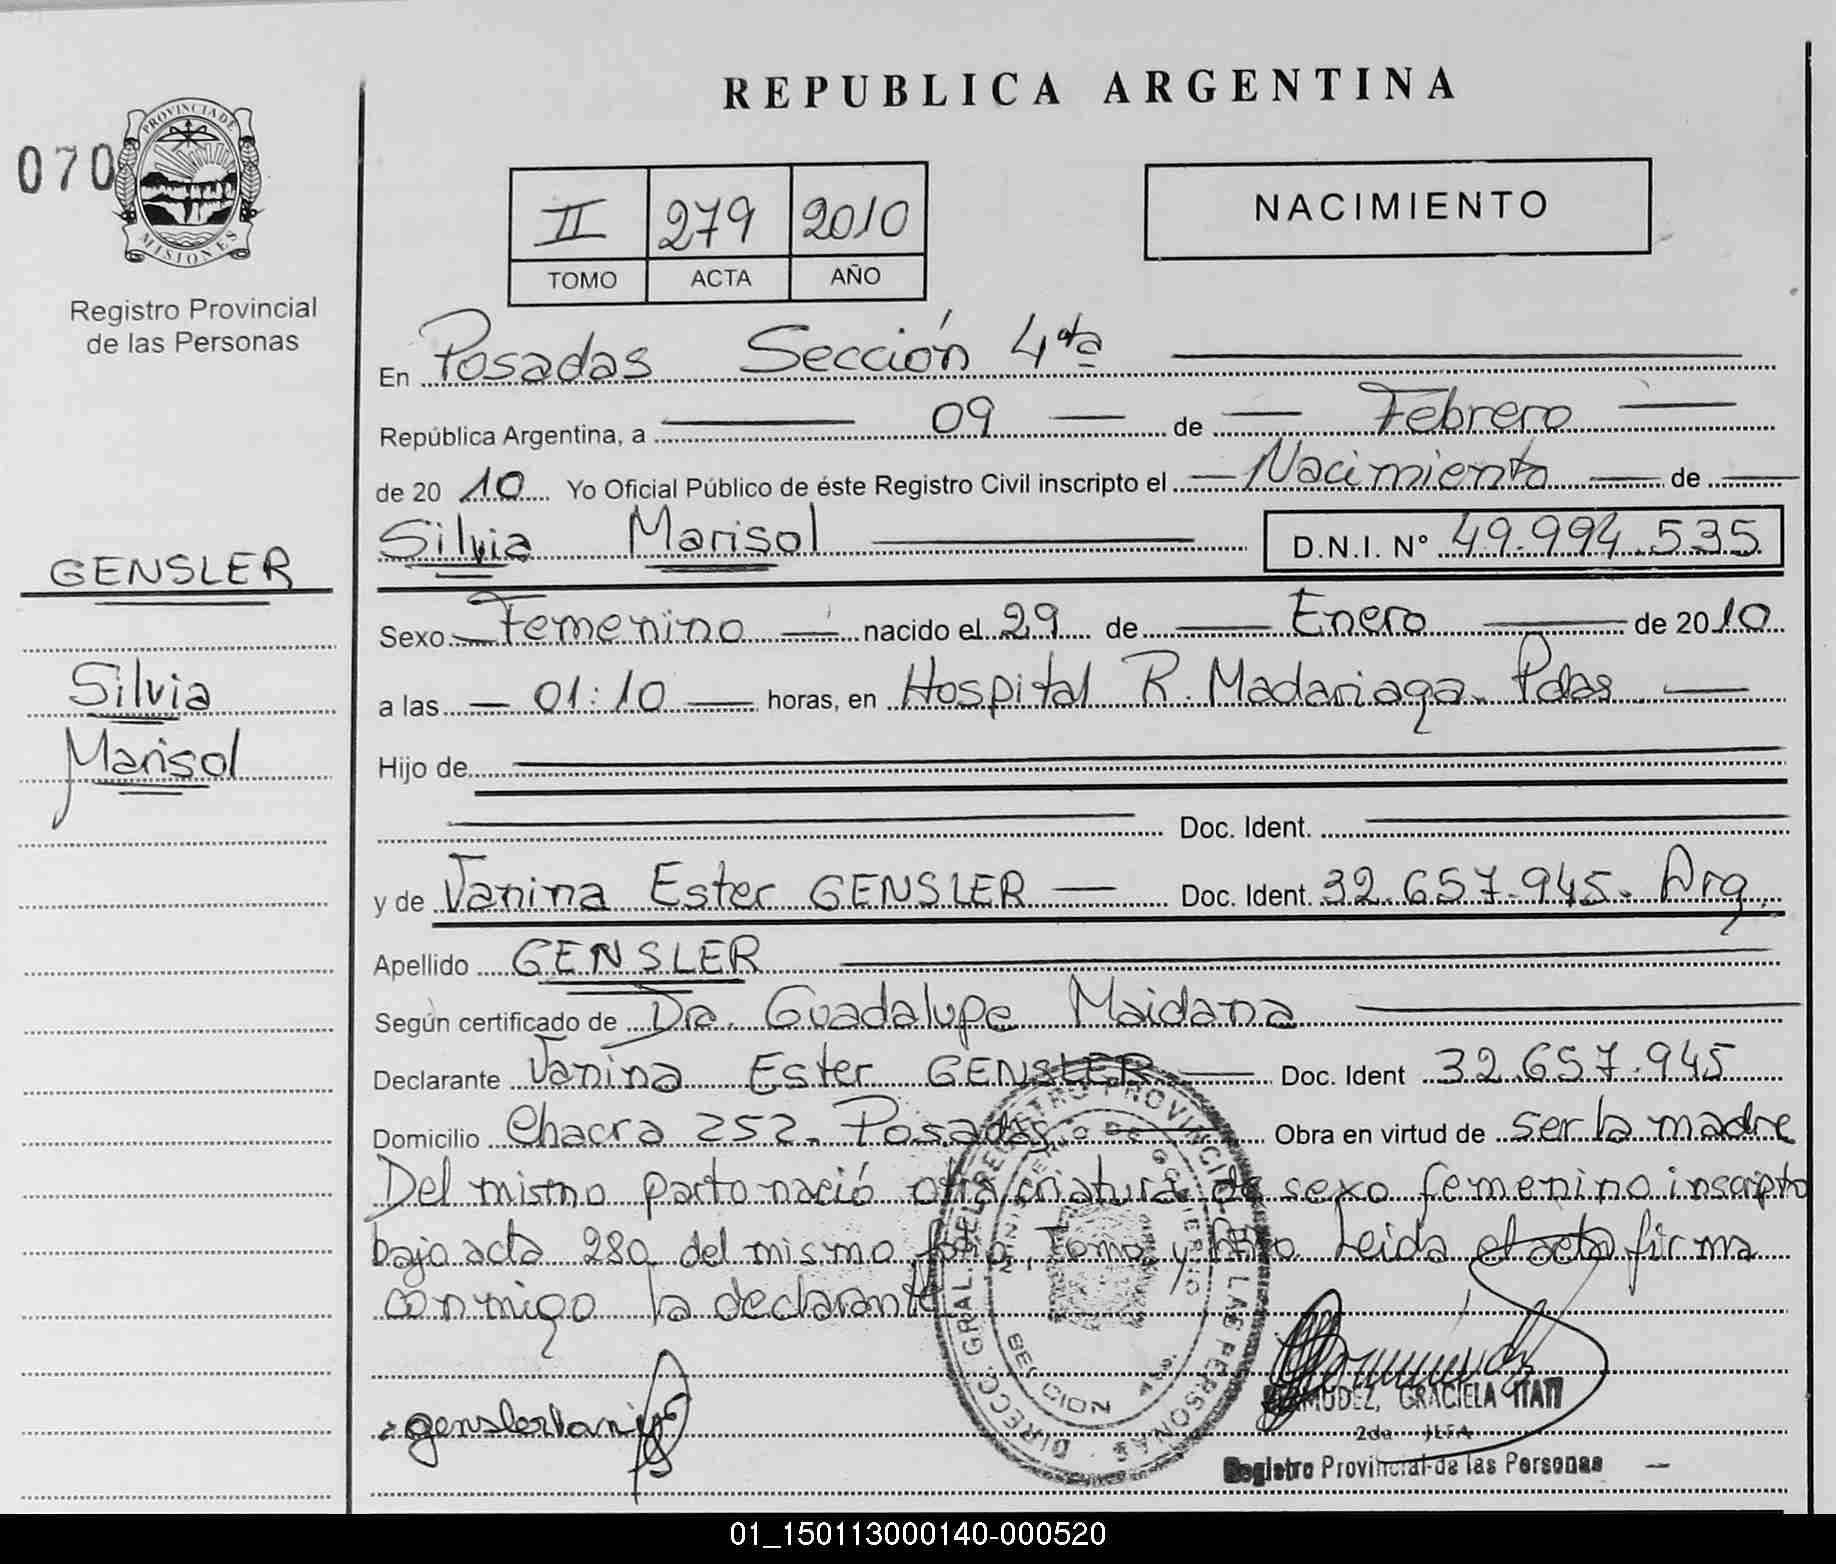 REPUBLICA ARGENTINA
070
PROVINCIA DE
MISIONES
Registro Provincial
de las Personas
II 279 2010
TOMO ACTA AÑO
NACIMIENTO
En Posadas Sección 4ta
República Argentina, a 09 de Febrero
de 2010 Yo Oficial Público de éste Registro Civil inscripto el Nacimiento de
Silvia Marisol D.N.I. Nº 49.994.535
GENSLER
Silvia
Marisol
Sexo Femenino nacido el 29 de Enero de 2010
a las 01:10 horas, en Hospital R. Madariaga. Pdas
Hijo de
Doc. Ident.
y de Vanina Ester GENSLER Doc. Ident. 32.657.945. Arg.
Apellido GENSLER
Según certificado de Dra. Guadalupe Maidana
Declarante Vanina Ester GENSLER Doc. Ident 32.657.945
Domicilio Chacra 252. Posadas Obra en virtud de ser la madre
Del mismo parto nació otra criatura de sexo femenino inscripto
bajo acta 280 del mismo Tomo y Leida el acta firma
conmigo la declarante
DIRECC. GRAL. DEL REGISTRO PROVINCIAL LAS PERSONAS
MINISTERIO DE GOBIERNO
BERMUDEZ, GRACIELA ITATI
2da JEFA
Registro Provincial de las Personas
01_150113000140-000520